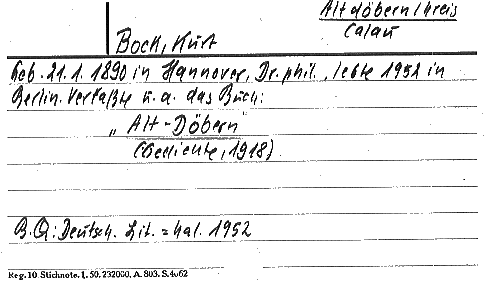 Altdöbern/Kreis
Calau
Bock, Kurt
Geb. 21.1. 1890 in Hannover, Dr. phil., lebte 1952 in
Berlin. Verfaßte u. a. das Buch:
„Alt-Döbern"
(Gedichte, 1918)
B.Q: Deutsch. Lit. = Kal. 1952
Reg. 10 Stichnote. I. 50. 232000. A. 803. S. 4062